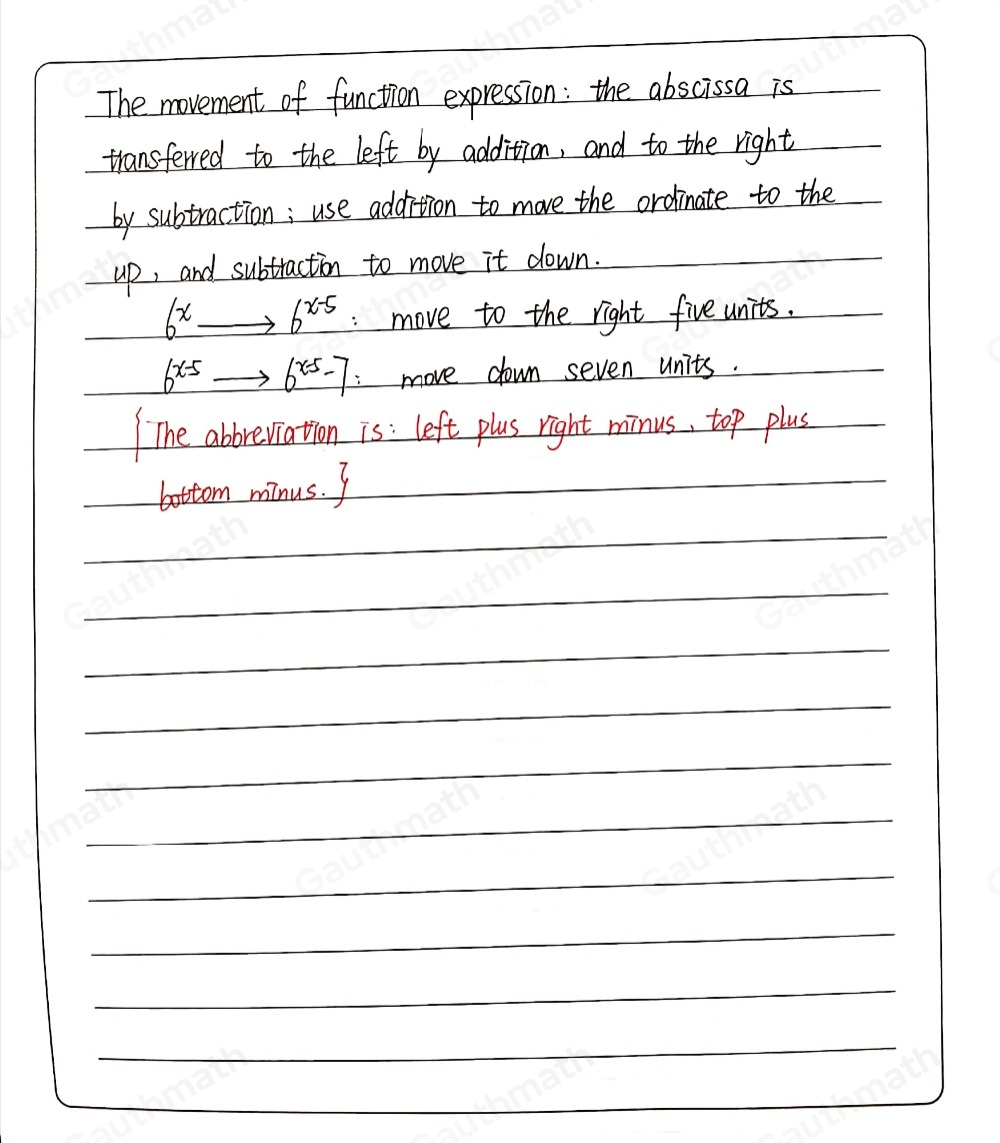 The movement of function expression: the abscissa is
transferred to the left by addition, and to the right
by subtraction; use addition to move the ordinate to the
up, and subtraction to move it down.
6ˣ ⟶ 6ˣ⁻⁵ : move to the right five units.
6ˣ⁻⁵ ⟶ 6ˣ⁻⁵-7: move down seven units.
{The abbreviation is: left plus right minus, top plus
bottom minus.}
Gauthmath